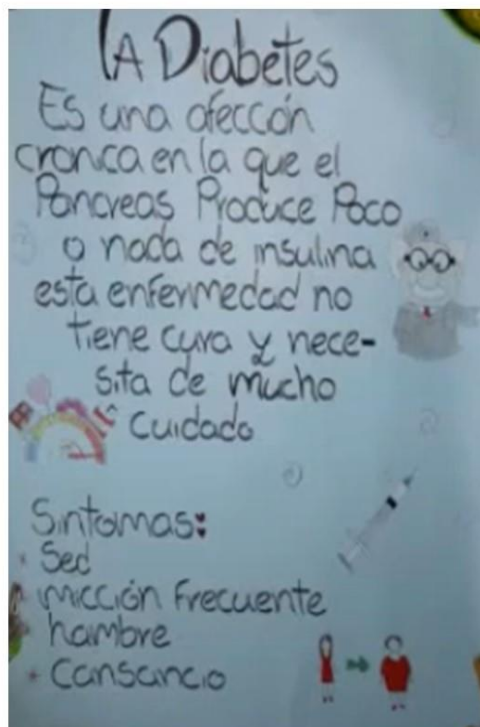 LA Diabetes
Es una afección
cronica en la que el
Pancreas Produce Poco
o nada de insulina
esta enfermedad no
tiene cura y nece-
sita de mucho
cuidado
Sintomas:
* Sed
* micción frecuente
* hambre
* cansancio